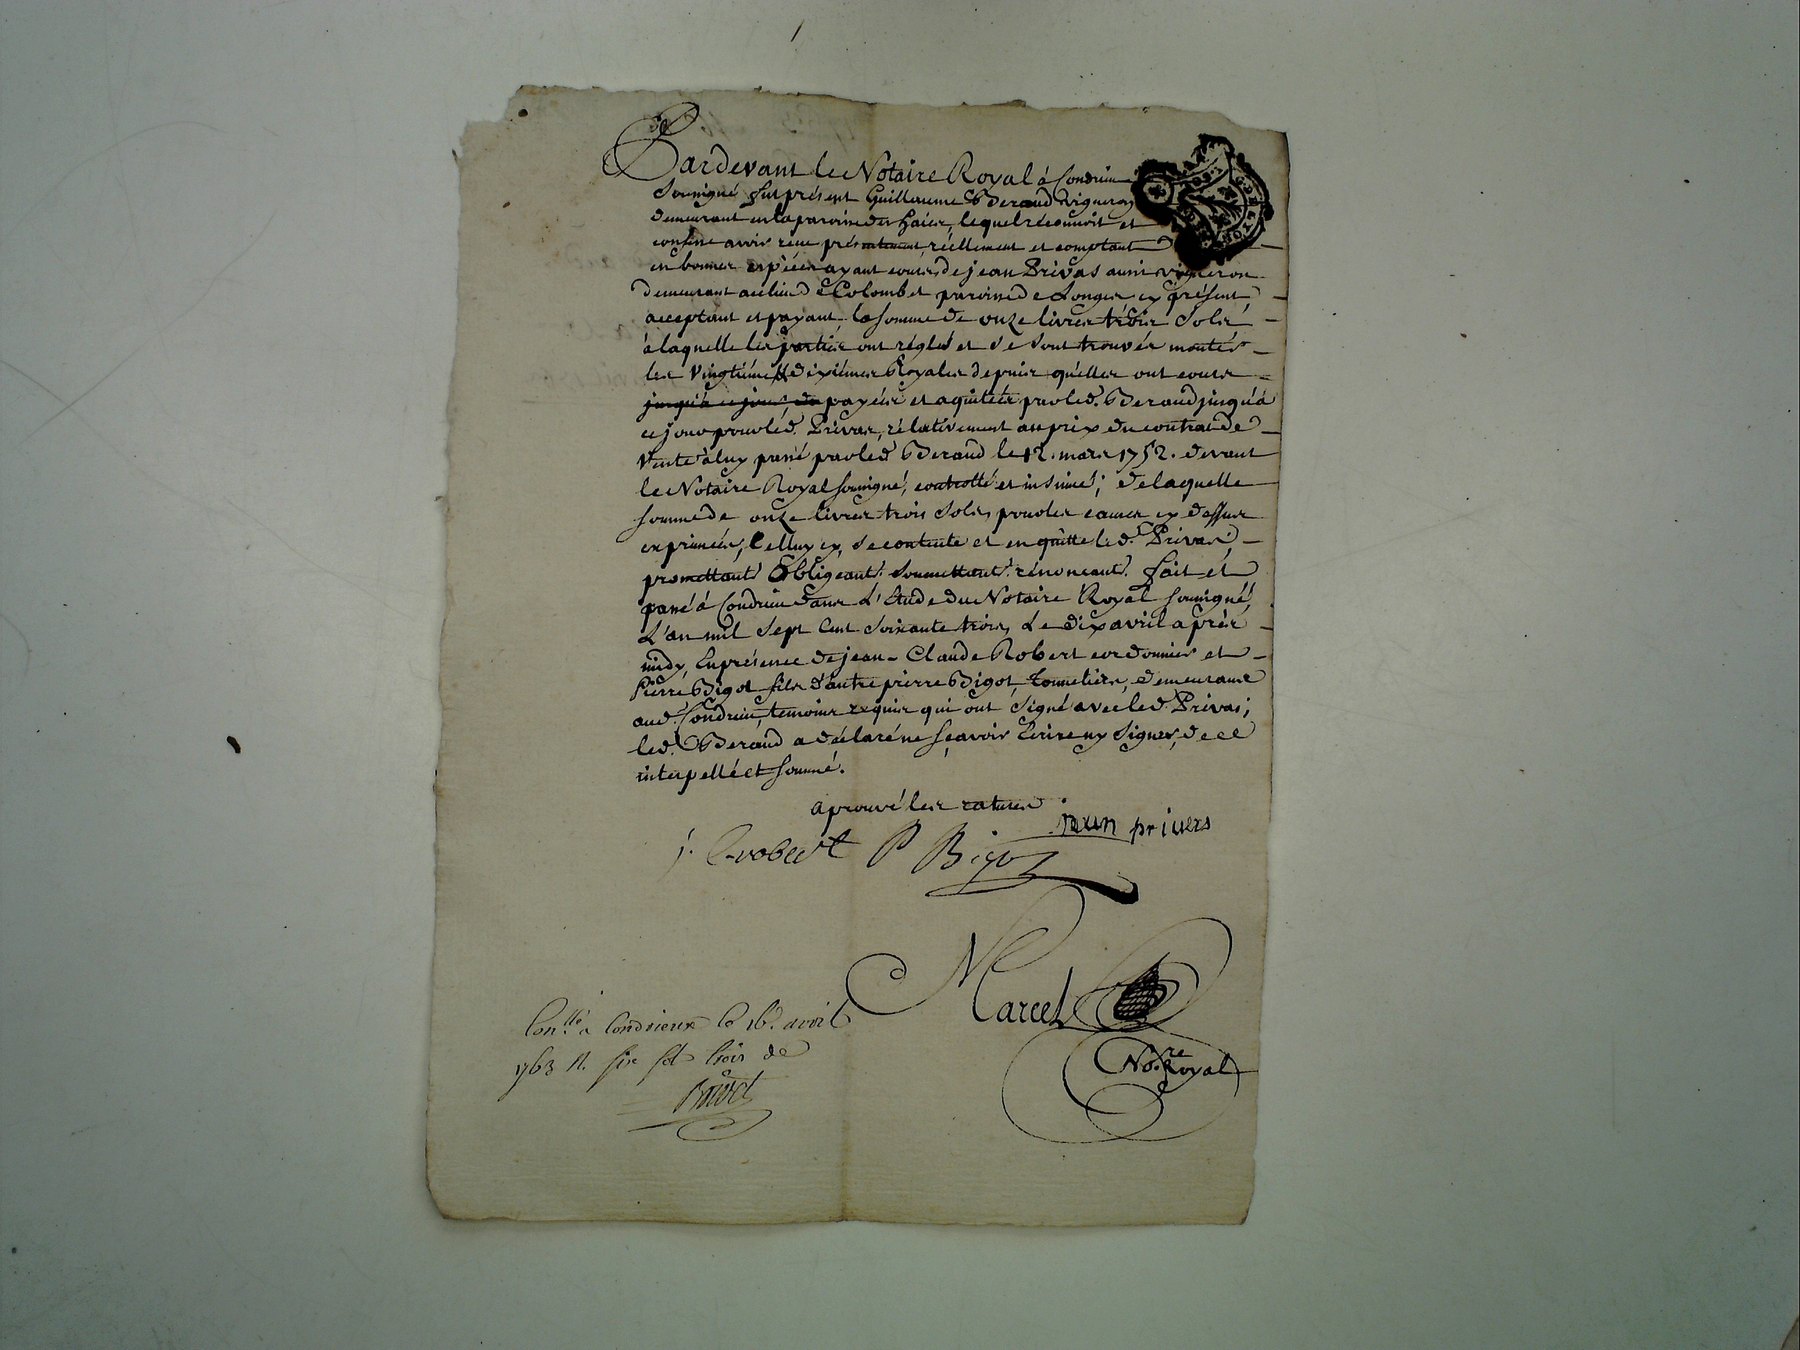 Pardevant le Notaire Royal á Condrieu
Soussigné fut présent Guillaume Beraud vigneron
demeurant en la paroisse des haies, lequel réconnoit et
confesse avoir réçu présentement réellement et comptant
en bonnes espéces ayant cours, de jean Privas aussi vigneron
demeurant au lieu de Colombet paroisse de Longes cy présent
acceptant et payant la somme de onze livres trois Sols
á laquelle les parties ont réglés et se sont trouvés montés
les vingtiémes & dixiémes Royales depuis qu'elles ont cours
jusqu'á ce jour, payées et aquitées par led. Beraud jusqu'á
ce jour pour led. Privas, rélativement au prix du contrat de
Vente á luy passé par led. Beraud le 12. mars 1752. devant
le Notaire Royal soussigné, controllé et insinué; de laquelle
somme de onze livres trois Sols, pour les causes cy dessus
exprimées, Celluy cy, se contente et en quitte led. Privas
promettant Obligeant. soumettant. rénonceant. fait et
passé á Condrieu dans L'Etude du Notaire Royal soussigné,
L'an mil Sept Cent Soixante trois, Le dix avril aprés
midy, En présence de jean-Claude Robert cordonnier et
Pierre Bigot fils d'autre pierre Bigot, tonneliers, demeurants
aud. Condrieu, temoins requis qui ont Signé avec led. Privas;
led. Beraud a déclaré ne sçavoir Ecrire ny Signer, de ce
interpellé et sommé.
aprouvé les ratures
jean privers
j. C robert P Bigot
Marcel
No.re Royal
Con.llé á Condrieux le 16. avril
1763 R. six sols trois de